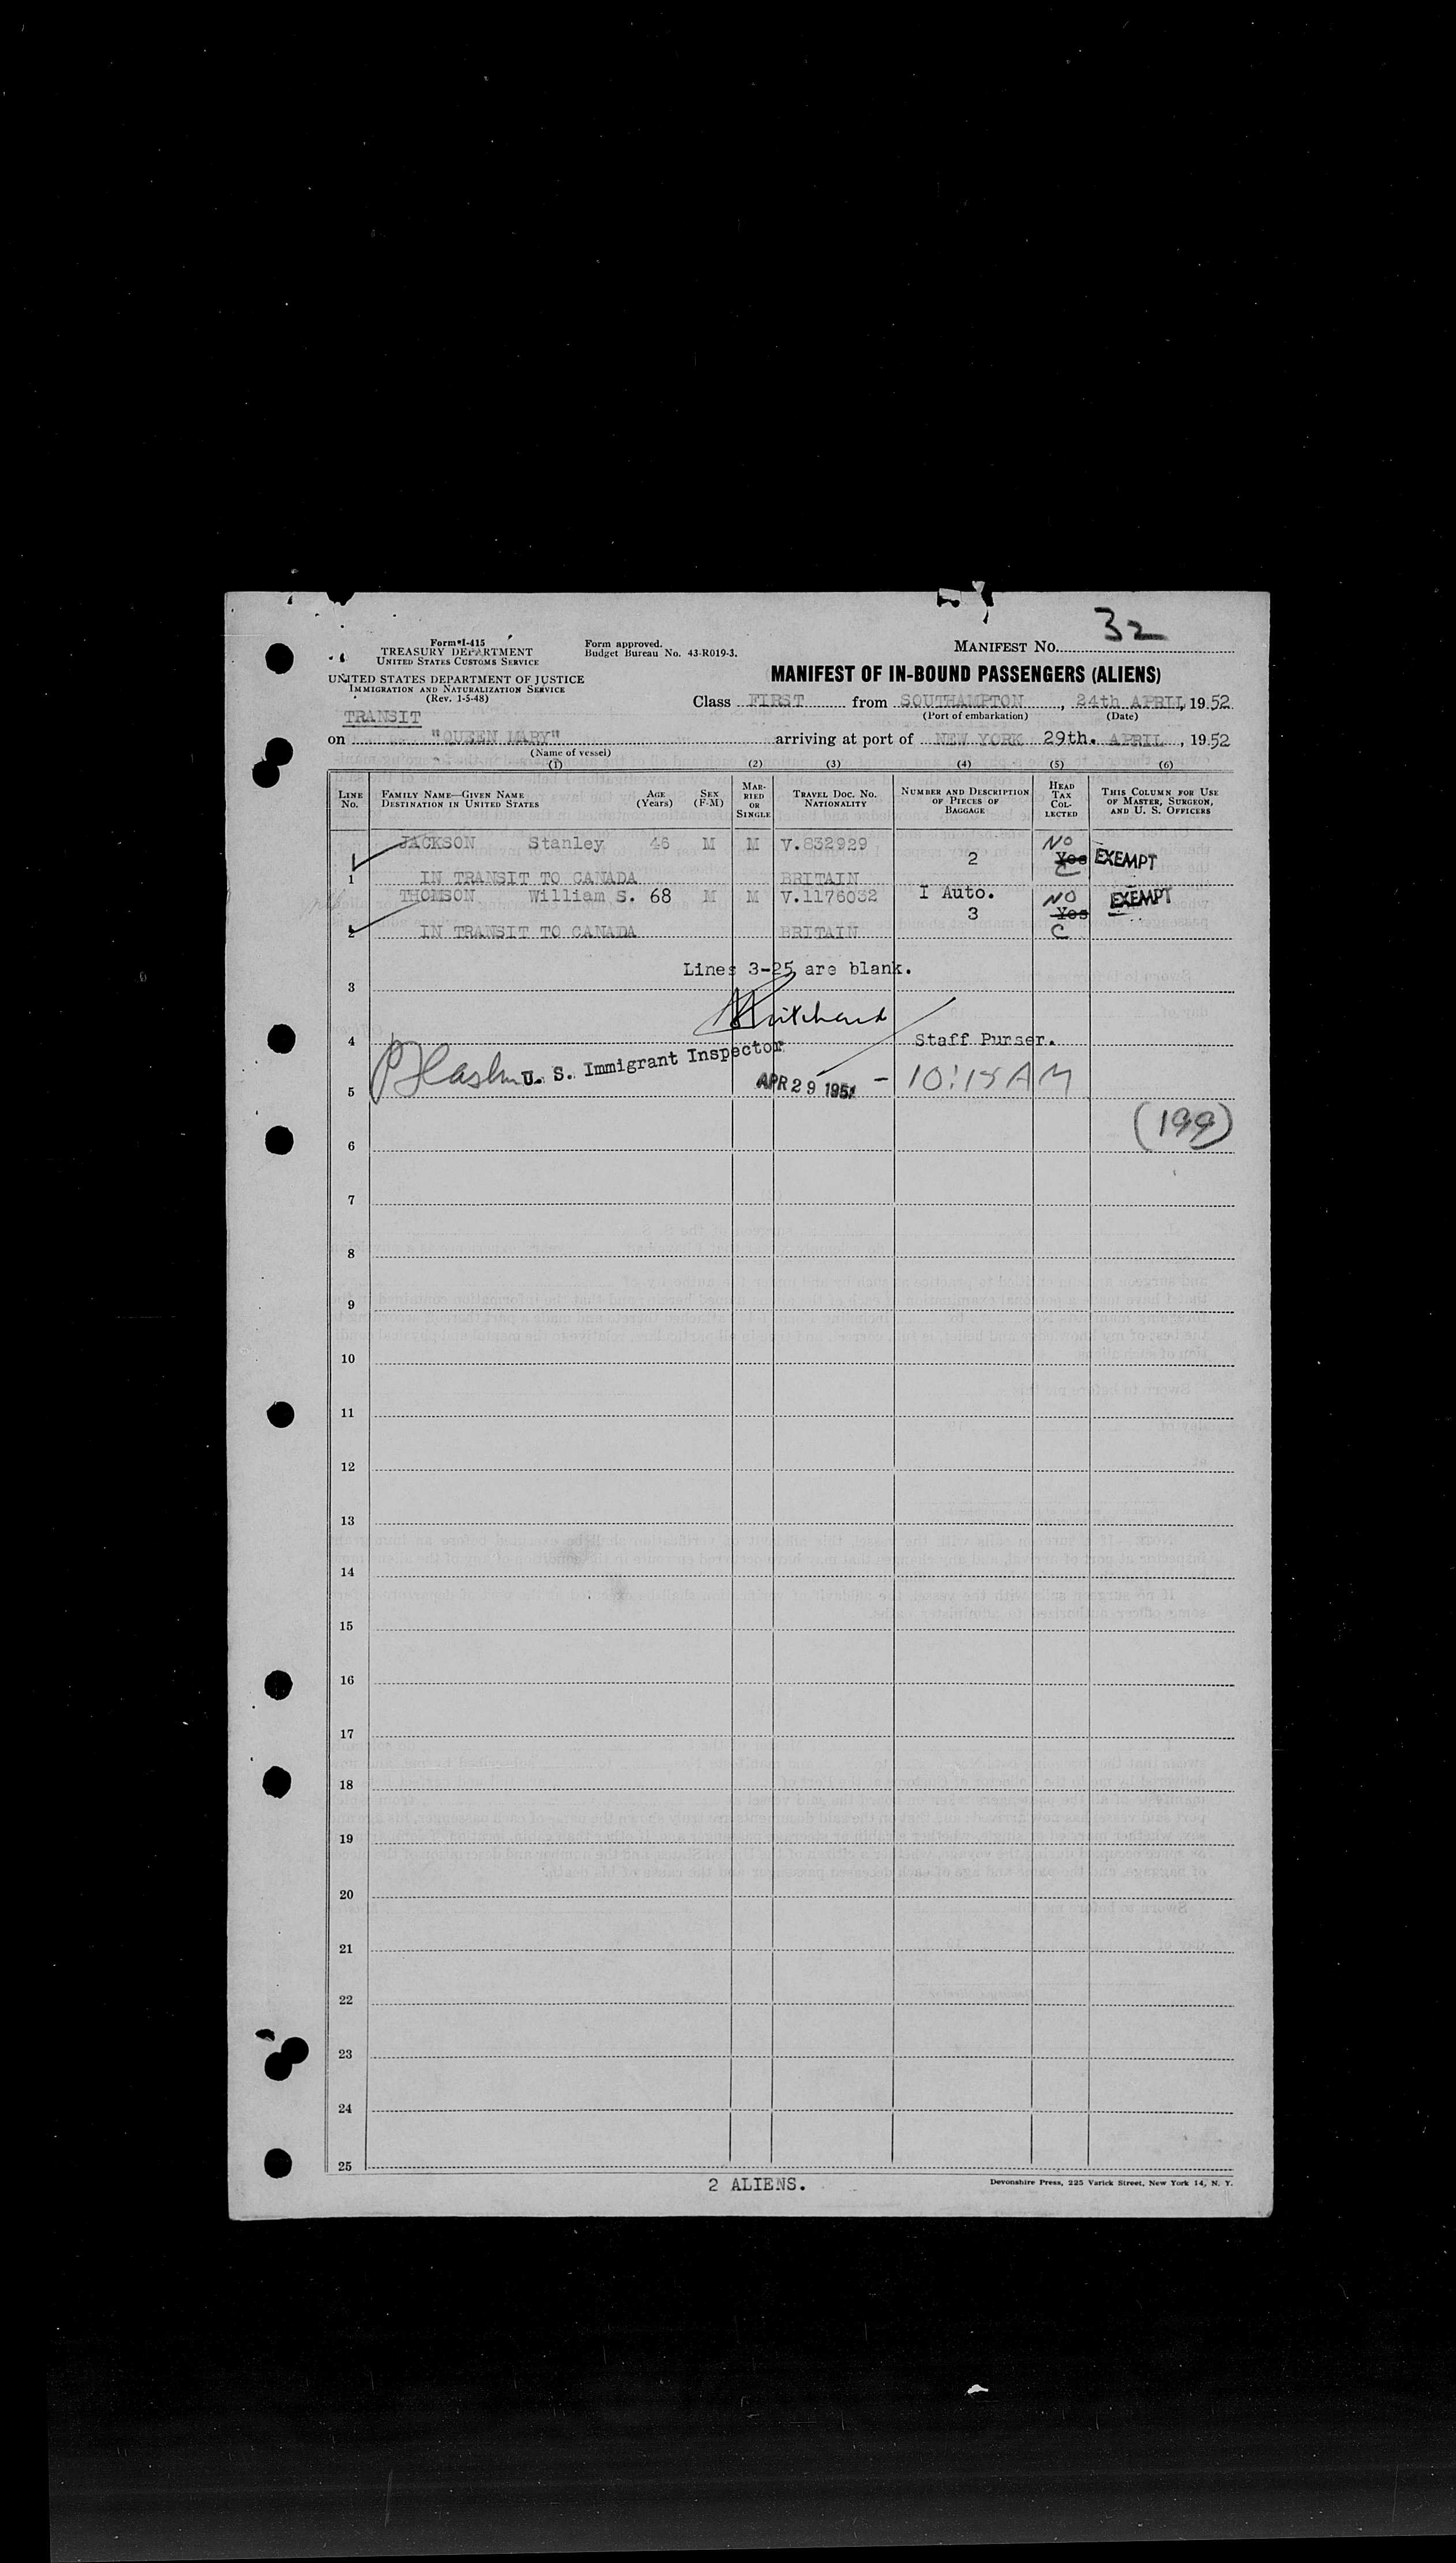 32
Form I-415
TREASURY DEPARTMENT
UNITED STATES CUSTOMS SERVICE
UNITED STATES DEPARTMENT OF JUSTICE
IMMIGRATION AND NATURALIZATION SERVICE
(Rev. 1-5-48)
Form approved.
Budget Bureau No. 43-R019-3.
MANIFEST No.
MANIFEST OF IN-BOUND PASSENGERS (ALIENS)
Class FIRST from SOUTHAMPTON, 24th APRIL, 1952
(Port of embarkation) (Date)
TRANSIT
on "QUEEN MARY" arriving at port of NEW YORK 29th. APRIL, 1952
(Name of vessel)
(1) (2) (3) (4) (5) (6)
LINE No. FAMILY NAME—GIVEN NAME DESTINATION IN UNITED STATES AGE (Years) SEX (F-M) MARRIED OR SINGLE TRAVEL DOC. NO. NATIONALITY NUMBER AND DESCRIPTION OF PIECES OF BAGGAGE HEAD TAX COLLECTED THIS COLUMN FOR USE OF MASTER, SURGEON, AND U. S. OFFICERS
JACKSON Stanley 46 M M V.832929 NO
2 Yes EXEMPT
1 IN TRANSIT TO CANADA BRITAIN C
THOMSON William S. 68 M M V.1176032 I Auto. NO EXEMPT
3 Yes
2 IN TRANSIT TO CANADA BRITAIN C
Lines 3-25 are blank.
3
Pritchard
4 Staff Purser.
U. S. Immigrant Inspector
5 APR 29 1952 - 10:15 AM
(199)
6
7
8
9
10
11
12
13
14
15
16
17
18
19
20
21
22
23
24
25
2 ALIENS.
Devonshire Press, 225 Varick Street, New York 14, N. Y.